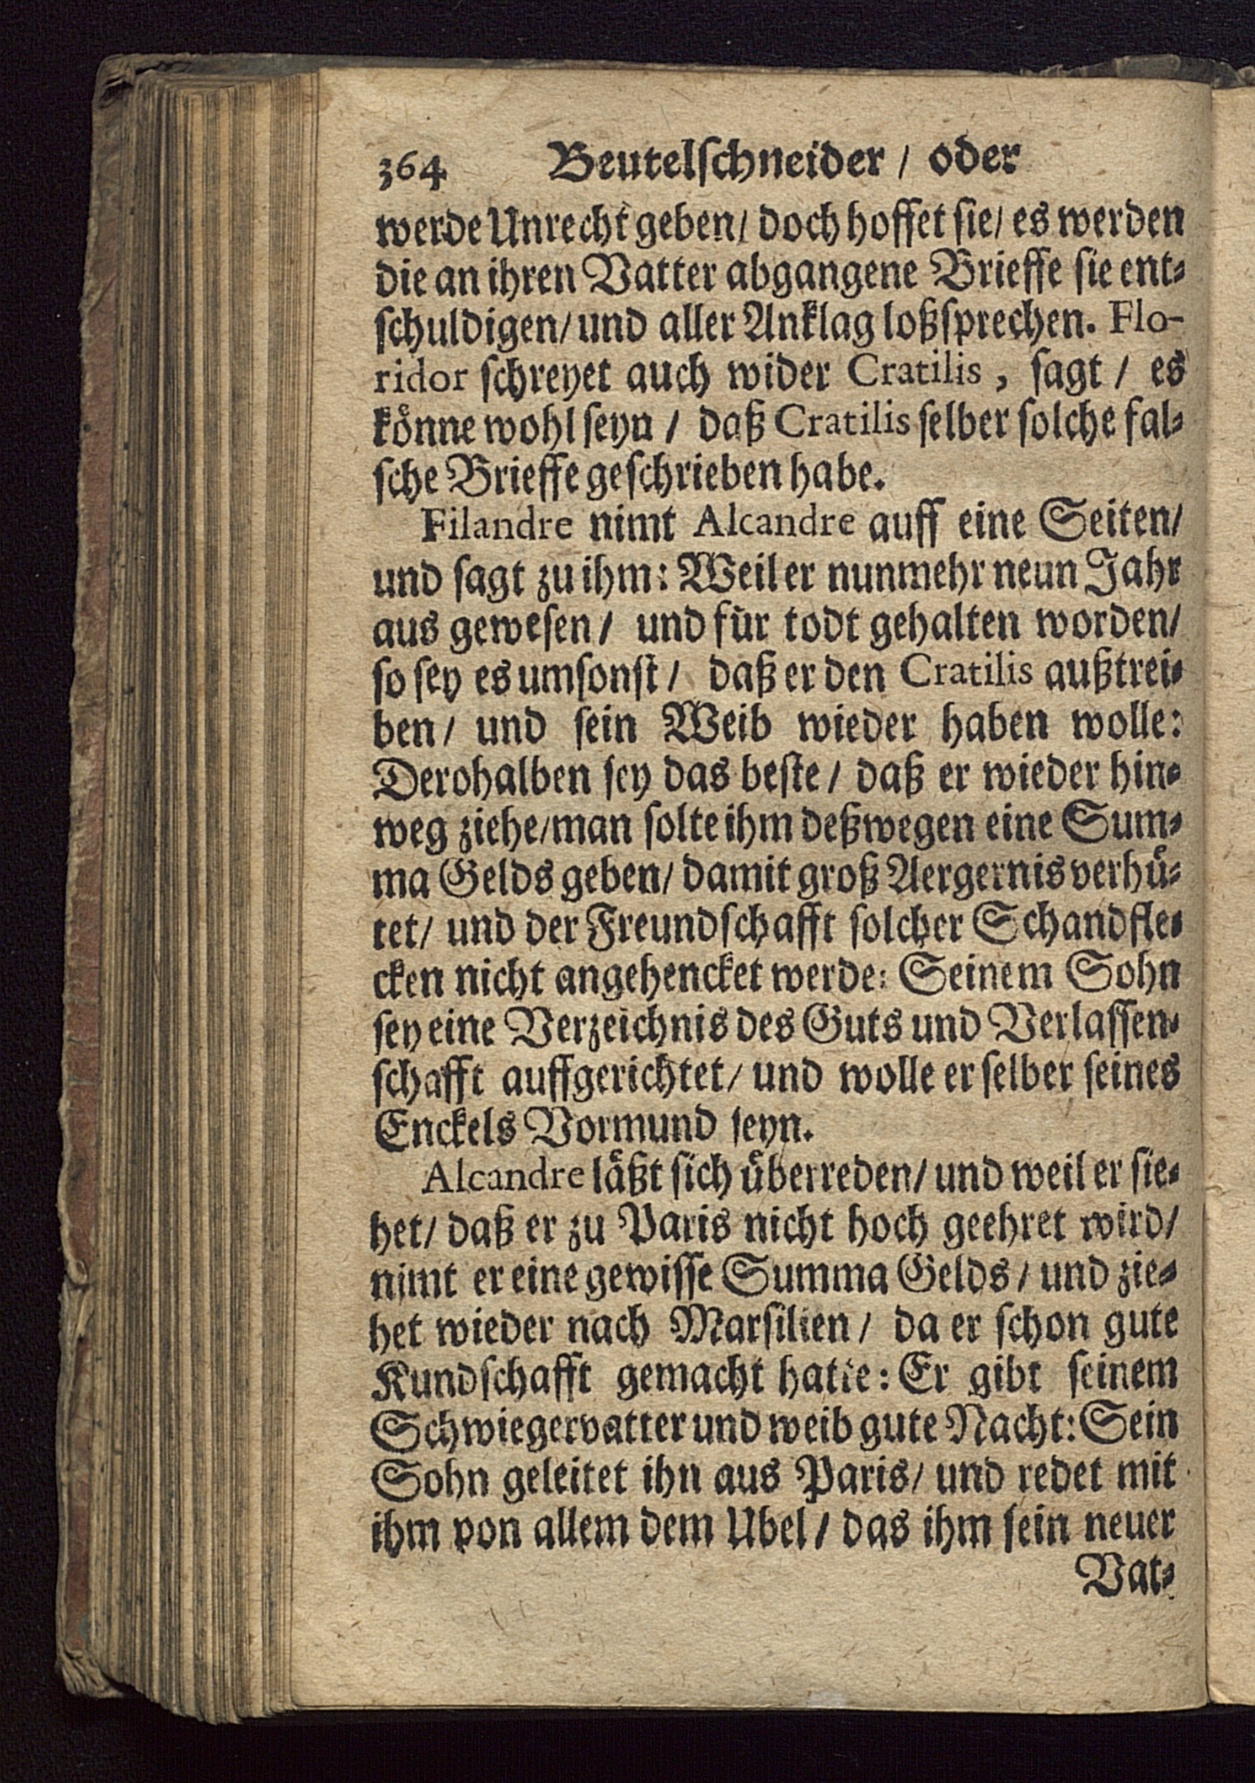 364 Beutelschneider / oder
werde Unrecht geben/ doch hoffet sie/ es werden
die an ihren Vatter abgangene Brieffe sie ent-
schuldigen/ und aller Anklag loßsprechen. Flo-
ridor schreyet auch wider Cratilis, sagt / es
könne wohl seyn / daß Cratilis selber solche fal-
sche Brieffe geschrieben habe.
Filandre nimt Alcandre auff eine Seiten/
und sagt zu ihm: Weil er nunmehr neun Jahr
aus gewesen/ und für todt gehalten worden/
so sey es umsonst/ daß er den Cratilis außtrei-
ben/ und sein Weib wieder haben wolle:
Derohalben sey das beste/ daß er wieder hin-
weg ziehe/man solte ihm deßwegen eine Sum-
ma Gelds geben/ damit groß Aergernis verhü-
tet/ und der Freundschafft solcher Schandfle-
cken nicht angehencket werde: Seinem Sohn
sey eine Verzeichnis des Guts und Verlassen-
schafft auffgerichtet/ und wolle er selber seines
Enckels Vormund seyn.
Alcandre läßt sich überreden/ und weil er sie-
het/ daß er zu Paris nicht hoch geehret wird/
nimt er eine gewisse Summa Gelds/ und zie-
het wieder nach Marsilien/ da er schon gute
Kundschafft gemacht hatte: Er gibt seinem
Schwiegervatter und weib gute Nacht: Sein
Sohn geleitet ihn aus Paris/ und redet mit
ihm von allem dem Ubel/ das ihm sein neuer
Vat-